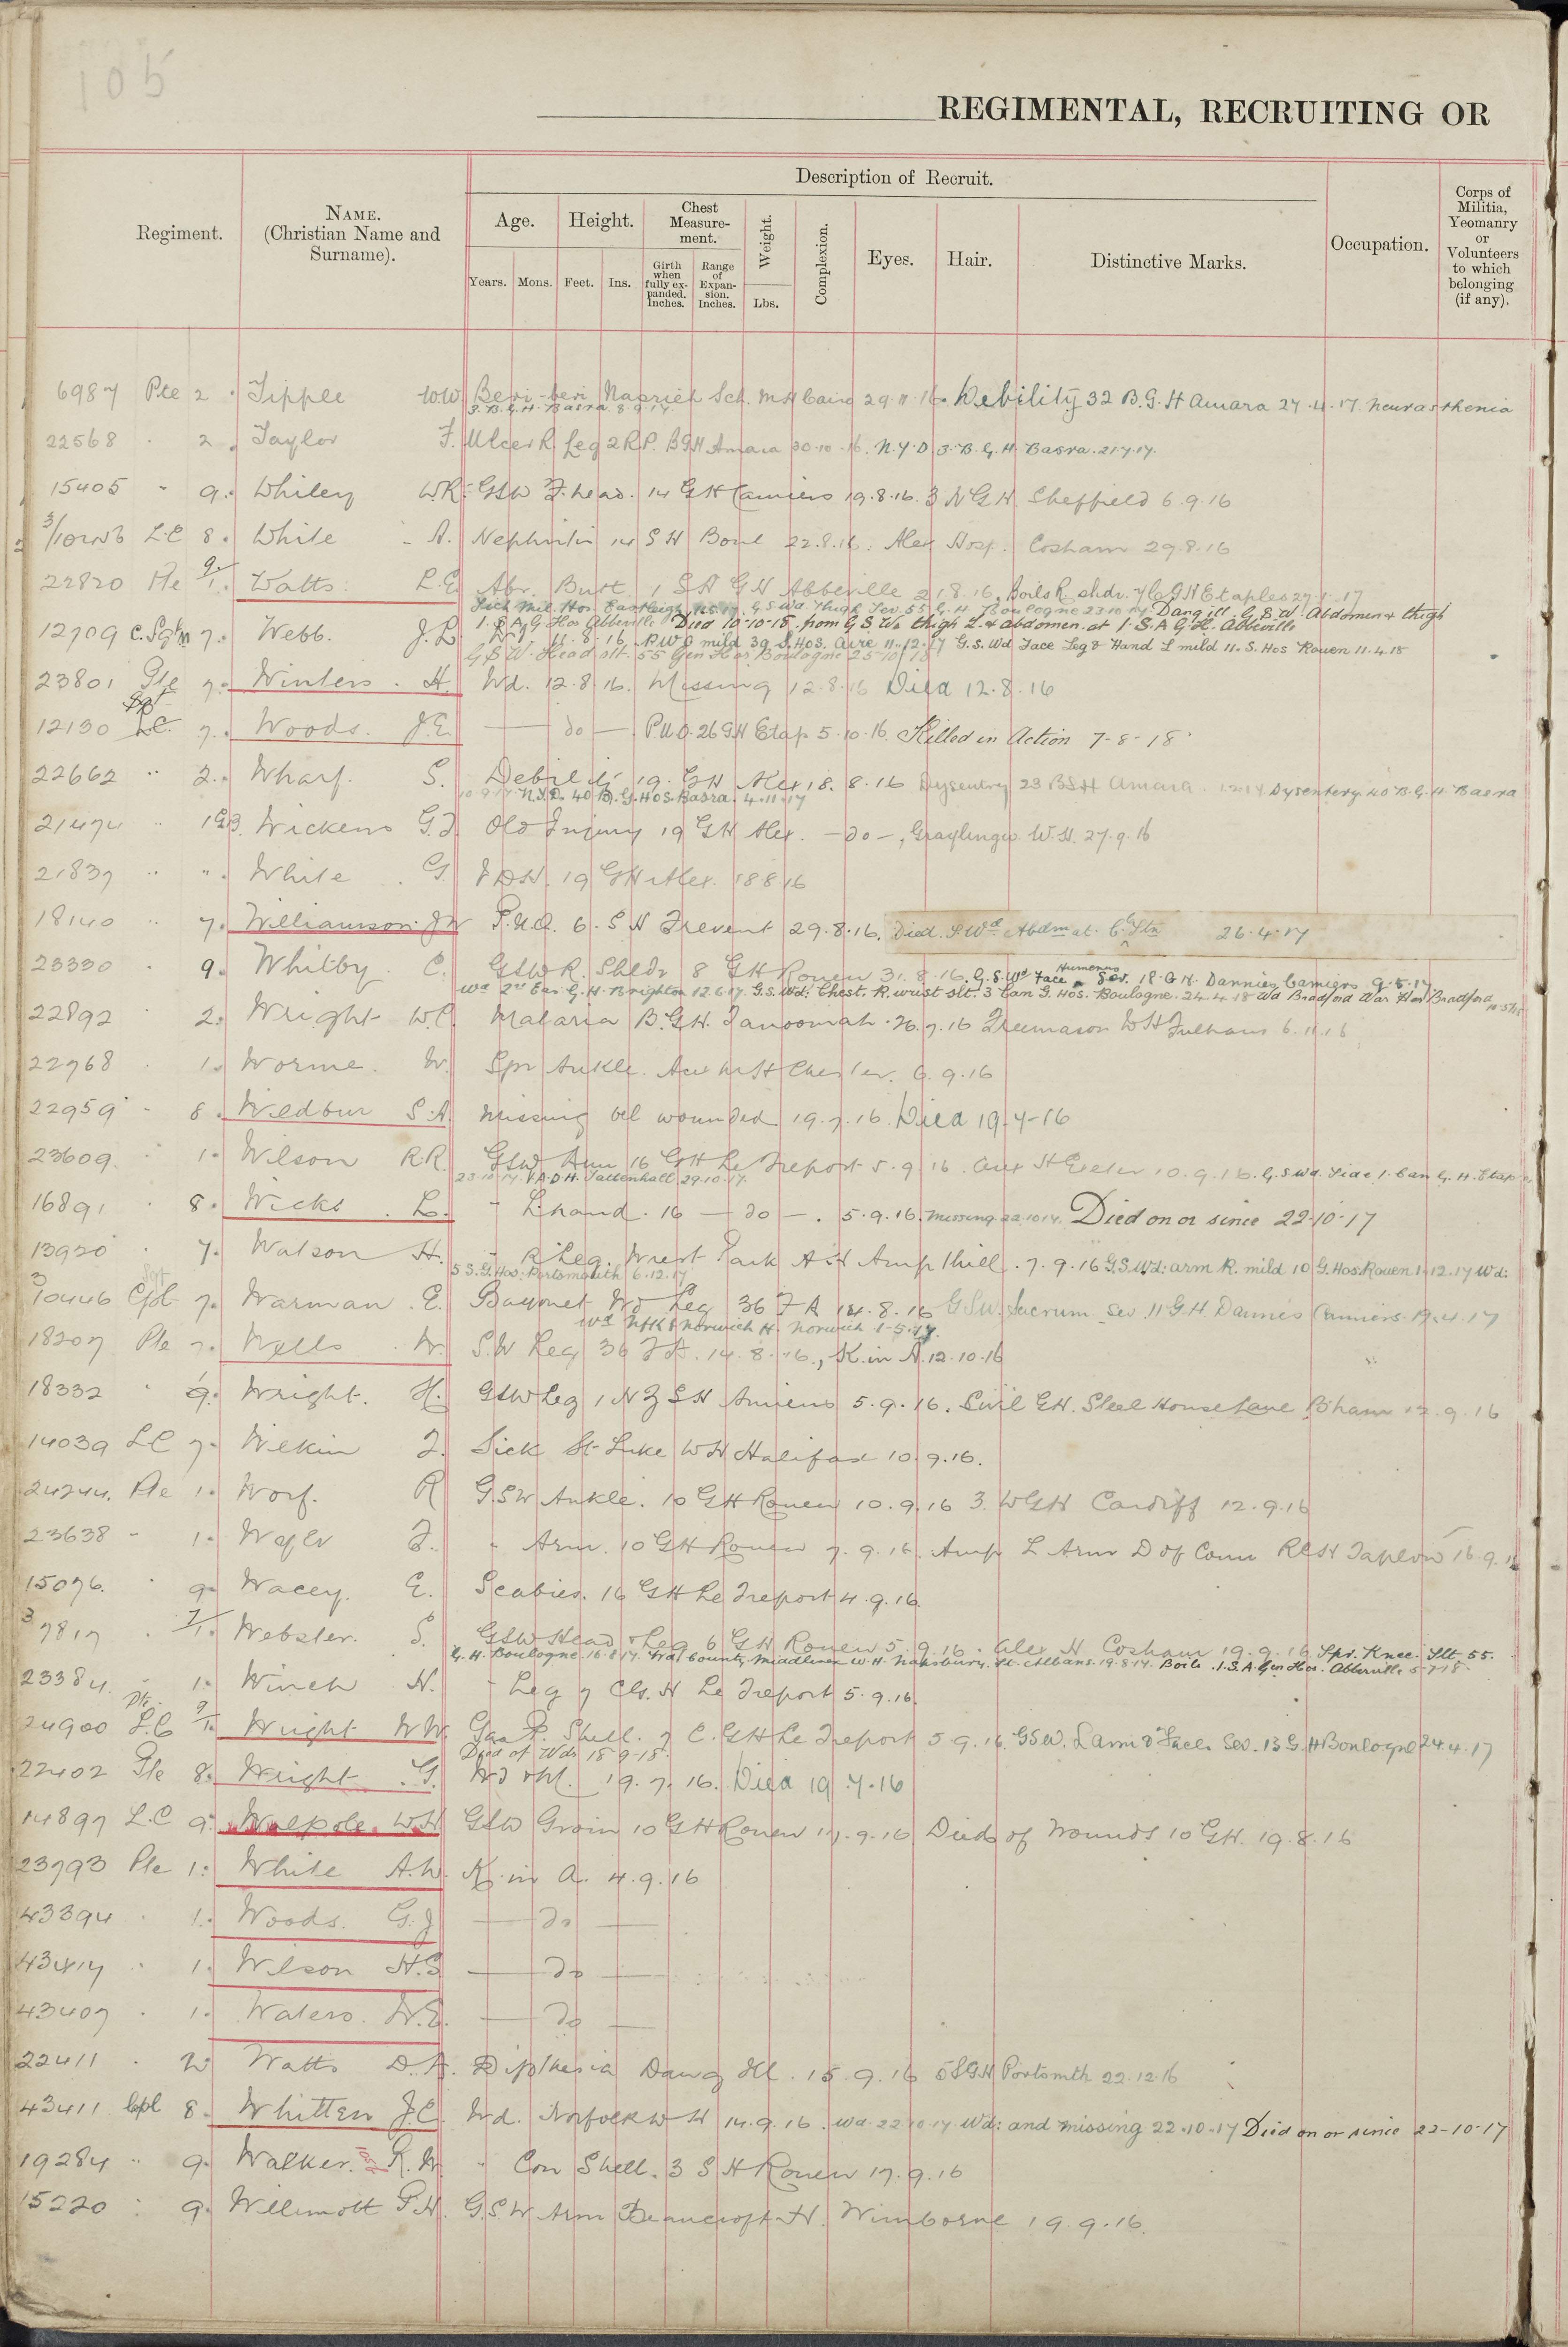 105
REGIMENTAL, RECRUITING OR
Regiment.
NAME.
(Christian Name and
Surname).
Description of Recruit.
Age.
Height.
Chest
Measure-
ment.
Weight.
Complexion.
Eyes.
Hair.
Distinctive Marks.
Occupation.
Corps of
Militia,
Yeomanry
or
Volunteers
to which
belonging
(if any).
Years.
Mons.
Feet.
Ins.
Girth
when
fully ex-
panded.
Inches.
Range
of
Expan-
sion.
Inches.
Lbs.
6987 Pte 2 Tipple W.W. Beri-beri Nasrieh Sch. M.H Cairo 29.11.16. Debility 32 B.G.H Amara 27.4.17. Neurasthenia
3.B.G.H. Basra 8.9.17.
22568 2. Taylor F. Ulcer R. Leg 2 R.P. BGH Amara 30.10.16. N.Y.D 3.B.G.H. Basra. 21.7.17.
15405 9. Whiley W.R. GSW F.head. 14 GH Camiers 19.8.16. 3 NGH Sheffield 6.9.16
L.C 8. White A. Nephritis 14 S H Boul 22.8.16. Alex Hosp. Cosham 29.8.16
22820 Pte 9/1. Watts. L.E. Abr. Butt. 1 SA GH Abbeville 21.8.16. Boils R. shdr. GH Etaples 27.1.17
Sick Mil. Hos. Eastleigh G S Wd Thigh Sev. 55 G. H. Boulogne 23.10.17. Dang ill. G.S.W. Abdomen & thigh
1. S.A.G. Hos Abbeville Died 10-10-18. from G S Ws thigh L. & abdomen. at 1. S.A G.H. Abbeville
12709 C.Sgt M 7. Webb. J.L. 11.8.16. mild 39 S.Hos. Aire 11.12.17 G.S. Wd Face Leg & Hand L mild 11. S. Hos Rouen 11.4.18
G.S W. Head slt. 55 Gen Hos Boulogne 25-10-18
23801 Pte 7. Winters. H. Wd. 12.8.16. Missing 12.8.16 Died 12.8.16
Sgt
12130 L.C. 7. Woods. J.E. — do — P.U.O. 26 GH Etap 5.10.16. Killed in Action 7-8-18
22662 " 2. Wharf. S. Debility 19. GH Alex 18.8.16 Dysentry 23 BSH Amara. Dysentery 40 B.G.H. Basra
N.Y.D. 40 B.G. Hos. Basra. 4.11.17
21474 " Wickens G.J. Old Injury 19 GH Alex. — do —, Graylingw. W.H. 27.9.16
21837 " " White G. 19 GH Alex. 18 8 16
18140 " 7. Williamson J W P.U.O. 6. S H Frevent 29.8.16. Died. S.Wd Abdm at. C. C. Stn 26.4.17
23330 9. Whitby. C. GSW R. Shldr 8 GH Rouen 31.8.16. G.S.Wd Face & Humerus Sev. 18 G H. Dannes Camiers 9.5.17.
Wd 2nd Eas. G. H. Brighton 12.6.17. G.S. Wd: Chest. R. wrist slt. 3 Can G. Hos. Boulogne. 24.4.18 Wd Bradford War Hos Bradford
22892 2. Wright W.C. Malaria B.G.H. Tanoomah 26.7.16 Freemason W H Fulham 6.11.16
22768 1. Worme. W. Spr Ankle. Aux M H Chester. 6.9.16
22959 8. Wildbur S.A. Missing bel wounded 19.7.16. Died 19-7-16
23609. 1. Wilson R.R. GSW Arm 16 GH Le Treport 5.9.16. Aux H Exeter 10.9.16. G.S Wd. Side 1. Can G. H. Etap
23.10.17. V.A.D H. Tattenhall 29.10.17.
16891 8. Wicks. L. " L hand. 16 — do —. 5.9.16. missing 22.10.17. Died on or since 22-10-17
13920 7. Watson H. " R Leg. Wrest Park A H Ampthill. 7.9.16 G.S. Wd: arm R. mild 10 G. Hos. Rouen 1.12.17 Wd:
5 S.G. Hos. Portsmouth 6.12.17
Sgt
3/10446 Cpl 7. Warman. E. Bayonet Wd Leg 36 F A 14.8.16 GSW. Sacrum. Sev. 11 G.H. Dannes Camiers 19.4.17
Wd Nflk & Norwich H. Norwich 1-5-17.
18207 Pte 7. Wells W. S.W Leg 36 F.A. 14.8.16, K. in A. 12.10.16
18332 9. Wright. H. GSW Leg 1 NZ SH Amiens 5.9.16. Civil GH. Steel House Lane B'ham 12.9.16
14039 L.C 7. Wilkin F. Sick St. Luke W H Halifax 10.9.16.
24244. Pte 1. Worf. R G.S.W Ankle. 10 GH Rouen 10.9.16 3. WGH Cardiff 12.9.16
23638 " 1. F. " Arm. 10 GH Rouen 7.9.16. Amp L Arm D of Conn RCH Taplow 16.9.16
15076. 9 Wacey. E. Scabies. 16 GH Le Treport 4.9.16.
3/7817 7/1. Webster. S. GSW Head & Leg 6 GH Rouen 5.9.16. Alex H. Cosham 19.9.16 Spr. Knee. Slt 55.
G. H. Boulogne. 16.8.17. Wd County Middlesex W. H. Napsbury. St. Albans. 19.8.17. Boils. 1.S.A. Gen Hos. Abbeville 5-7-18
23384. 1. Winch H. " Leg 7 C.G. H Le Treport 5.9.16.
Pte
24900 L.C Wright W W. Gas P. Shell. 7 C. GH Le Treport 5 9.16. GSW. L arm & Face. Sev. 13 G. H Boulogne 24 4.17
Died of Wds 18-9-18.
22402 Pte 8. Wright G. Wd & M. 19.7.16. Died 19.7.16
14897 L.C 9. Walpole. W.H. GSW Groin 10 GH Rouen 17.9.16 Died of Wounds 10 GH. 19.8.16
23793 Pte 1. White A.W. K. in A. 4.9.16
43394 1. Woods. G.J — do —
43417 1. Wilson H.S — do —
43407 1. Waters. W.E. — do —
22411 Watts D.A. Diptheria Dang Ill. 15.9.16 5 SGH Portsmth 22.12.16
43411 Cpl 8. Whitten J.C. Wd. Norfolk W H 14.9.16. Wd. 22.10.17 Wd: and missing 22.10.17 Died on or since 22-10-17
19284 " 9. Walker. R.W. " Con Shell. 3 S H Rouen 17.9.16
15220 9. Willimott P.H. G.S.W Arm Beaucroft H. Wimborne 19.9.16.